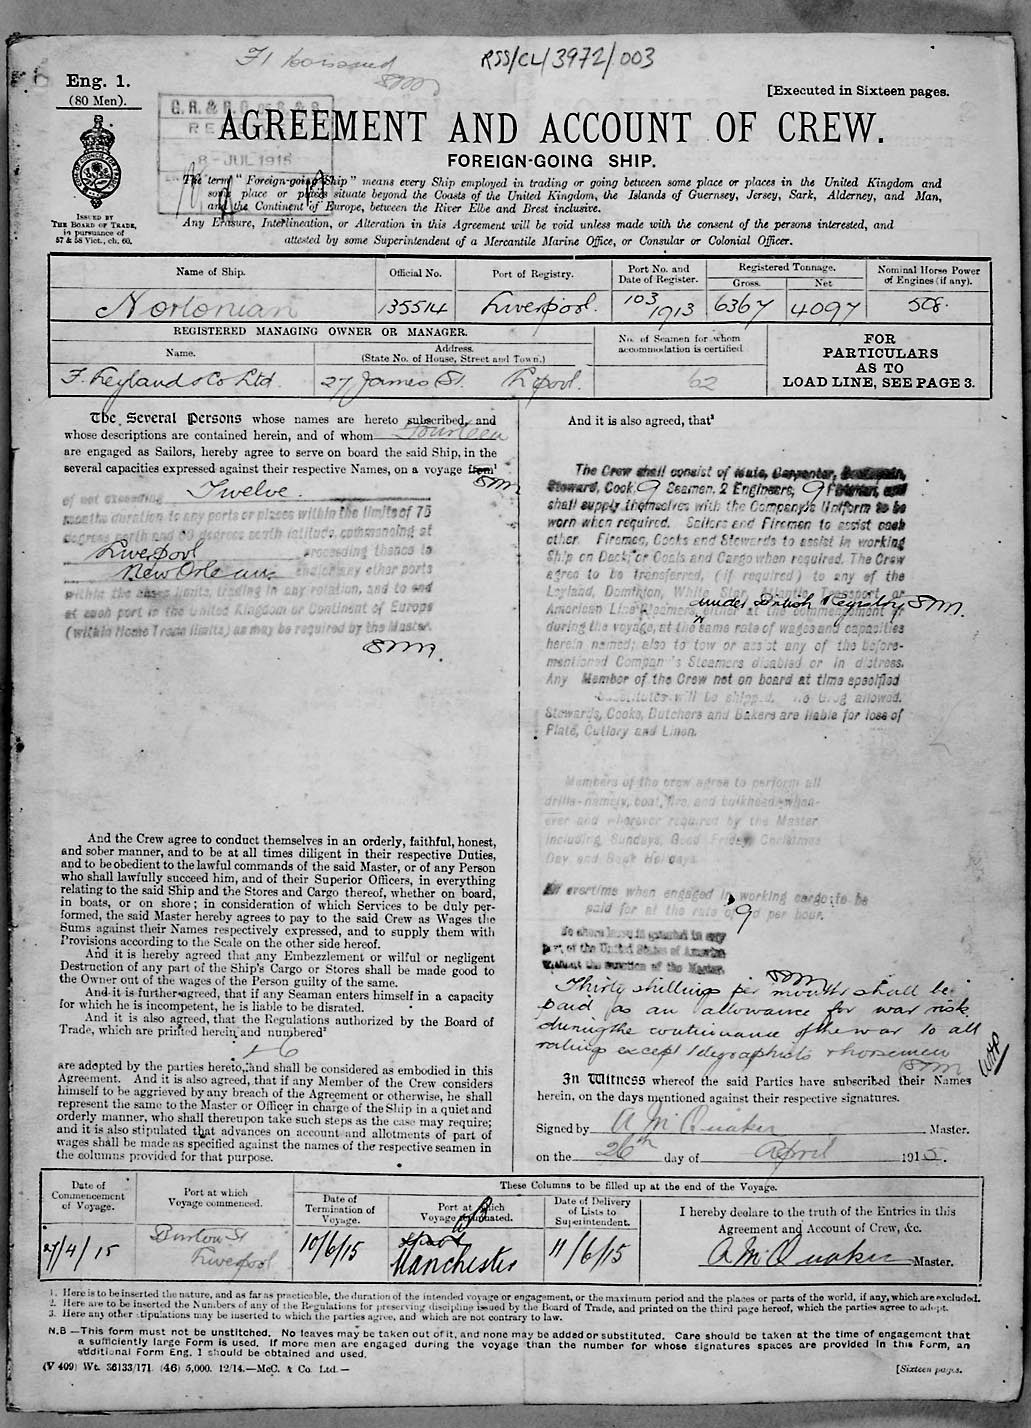 RSS/CL/3972/003
Eng. 1.
(80 Men).
[Executed in Sixteen pages.
8 - JUL 1915
AGREEMENT AND ACCOUNT OF CREW.
FOREIGN-GOING SHIP.
The term "Foreign-going Ship" means every Ship employed in trading or going between some place or places in the United Kingdom and
some place or places situate beyond the Coasts of the United Kingdom, the Islands of Guernsey, Jersey, Sark, Alderney, and Man,
and the Continent of Europe, between the River Elbe and Brest inclusive.
Any Erasure, Interlineation, or Alteration in this Agreement will be void unless made with the consent of the persons interested, and
attested by some Superintendent of a Mercantile Marine Office, or Consular or Colonial Officer.
ISSUED BY
THE BOARD OF TRADE,
in pursuance of
57 & 58 Vict., ch. 60.
Name of Ship. Official No. Port of Registry. Port No. and Date of Register. Registered Tonnage. Gross. Net Nominal Horse Power of Engines (if any).
Nortonian 135514 Liverpool. 103 1913 6367 4097 508.
REGISTERED MANAGING OWNER OR MANAGER.
Name. Address. (State No. of House, Street and Town.)
No. of Seamen for whom accommodation is certified
FOR
PARTICULARS
AS TO
LOAD LINE, SEE PAGE 3.
F. Leyland & Co Ltd. 27 James St. L'pool. 62
The Several Persons whose names are hereto subscribed, and
whose descriptions are contained herein, and of whom Fourteen
are engaged as Sailors, hereby agree to serve on board the said Ship, in the
several capacities expressed against their respective Names, on a voyage from¹
of not exceeding Twelve.
months duration to any ports or places within the limits of 75
degrees north and 60 degrees south latitude, commencing at
Liverpool proceeding thence to
New Orleans and/or any other ports
within the above limits, trading in any rotation, and to end
at such port in the United Kingdom or Continent of Europe
(within Home Trade limits) as may be required by the Master.
And the Crew agree to conduct themselves in an orderly, faithful, honest,
and sober manner, and to be at all times diligent in their respective Duties,
and to be obedient to the lawful commands of the said Master, or of any Person
who shall lawfully succeed him, and of their Superior Officers, in everything
relating to the said Ship and the Stores and Cargo thereof, whether on board,
in boats, or on shore; in consideration of which Services to be duly per-
formed, the said Master hereby agrees to pay to the said Crew as Wages the
Sums against their Names respectively expressed, and to supply them with
Provisions according to the Scale on the other side hereof.
And it is hereby agreed that any Embezzlement or wilful or negligent
Destruction of any part of the Ship's Cargo or Stores shall be made good to
the Owner out of the wages of the Person guilty of the same.
And it is further agreed, that if any Seaman enters himself in a capacity
for which he is incompetent, he is liable to be disrated.
And it is also agreed, that the Regulations authorized by the Board of
Trade, which are printed herein and numbered²
are adopted by the parties hereto, and shall be considered as embodied in this
Agreement. And it is also agreed, that if any Member of the Crew considers
himself to be aggrieved by any breach of the Agreement or otherwise, he shall
represent the same to the Master or Officer in charge of the Ship in a quiet and
orderly manner, who shall thereupon take such steps as the case may require;
and it is also stipulated that advances on account and allotments of part of
wages shall be made as specified against the names of the respective seamen in
the columns provided for that purpose.
And it is also agreed, that³
The Crew shall consist of Mate, Carpenter,
Steward, Cook, 9 Seamen, 2 Engineers, 9 Firemen, and
shall supply themselves with the Company's Uniform to be
worn when required. Sailors and Firemen to assist each
other. Firemen, Cooks and Stewards to assist in working
Ship on Deck, or Coals and Cargo when required. The Crew
agree to be transferred, (if required) to any of the
Leyland, Dominion, White Star, Atlantic Transport, or
American Line Steamers under British Registry either at the commencement or
during the voyage, at the same rate of wages and capacities
herein named; also to tow or assist any of the before-
mentioned Company's Steamers disabled or in distress.
Any Member of the Crew not on board at time specified
substitutes will be shipped. No Grog allowed.
Stewards, Cooks, Butchers and Bakers are liable for loss of
Plate, Cutlery and Linen.
Members of the crew agree to perform all
drills-namely, boat, fire, and bulkhead-when-
ever and wherever required by the Master
including Sundays, Good Friday, Christmas
Day and Bank Holidays.
All overtime when engaged in working cargo to be
paid for at the rate of 9d per hour.
No shore leave is granted in any
part of the United States of America
without the sanction of the Master.
Thirty shillings per month shall be
paid as an allowance for war risk
during the continuance of the war to all
ratings except telegraphists & horsemen
In Witness whereof the said Parties have subscribed their Names
herein, on the days mentioned against their respective signatures.
Signed by A M Quaker Master.
on the 26th day of April 1915.
Date of Commencement of Voyage. Port at which Voyage commenced. These Columns to be filled up at the end of the Voyage.
Date of Termination of Voyage. Port at which Voyage terminated. Date of Delivery of Lists to Superintendent. I hereby declare to the truth of the Entries in this
Agreement and Account of Crew, &c.
27/4/15 Liverpool 10/6/15 Manchester 11/6/15 A M Quaker Master.
1. Here is to be inserted the nature, and as far as practicable, the duration of the intended voyage or engagement, or the maximum period and the places or parts of the world, if any, which are excluded.
2. Here are to be inserted the Numbers of any of the Regulations for preserving discipline issued by the Board of Trade, and printed on the third page hereof, which the parties agree to adopt.
3. Here any other stipulations may be inserted to which the parties agree, and which are not contrary to law.
N.B—This form must not be unstitched. No leaves may be taken out of it, and none may be added or substituted. Care should be taken at the time of engagement that
a sufficiently large Form is used. If more men are engaged during the voyage than the number for whose signatures spaces are provided in this Form, an
additional Form Eng. 1 should be obtained and used.
(V 409) Wt. 36133/171 (46) 5,000. 12/14.—McC. & Co. Ltd.—
[Sixteen pages.